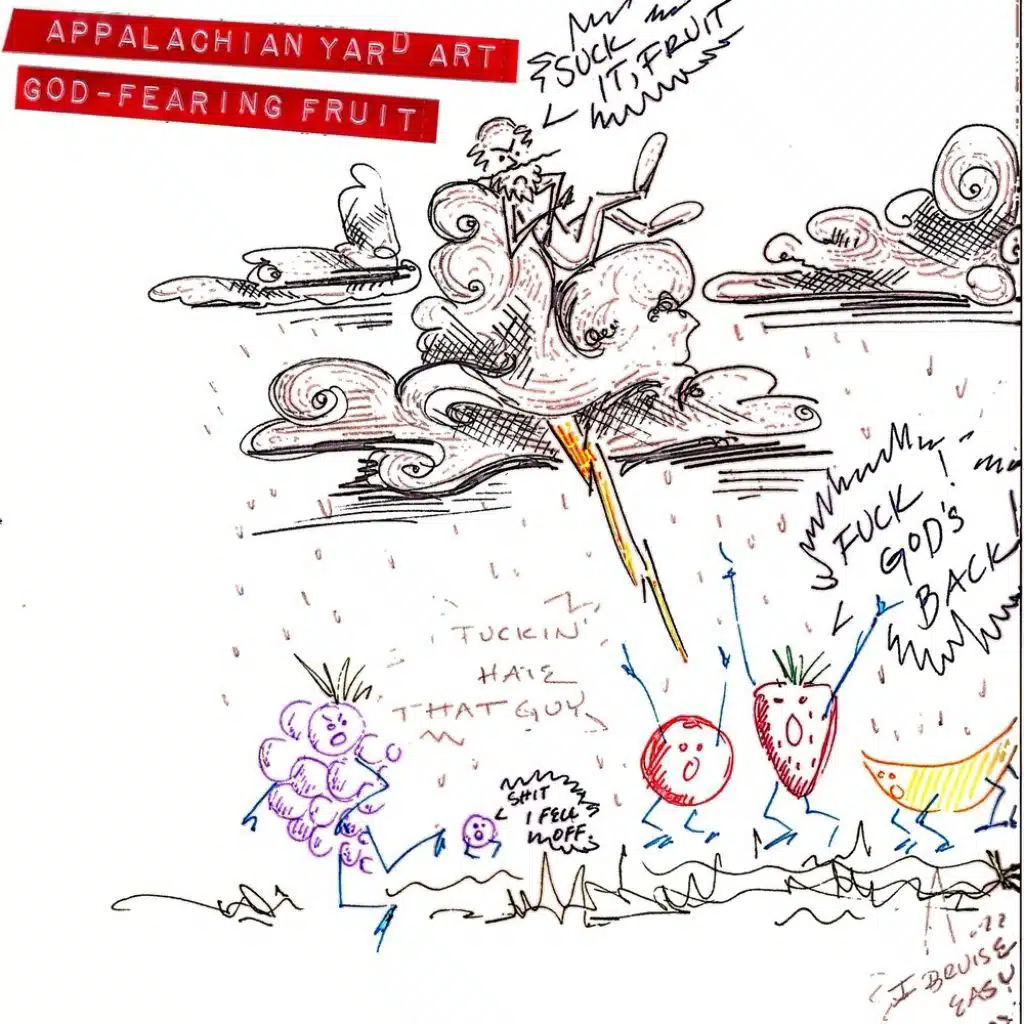 APPALACHIAN YARD ART
GOD-FEARING FRUIT
SUCK
IT, FRUIT
FUCK
GOD'S
BACK!
FUCKIN'
HATE
THAT GUY
SHIT
I FELL
OFF.
I BRUISE
EASY